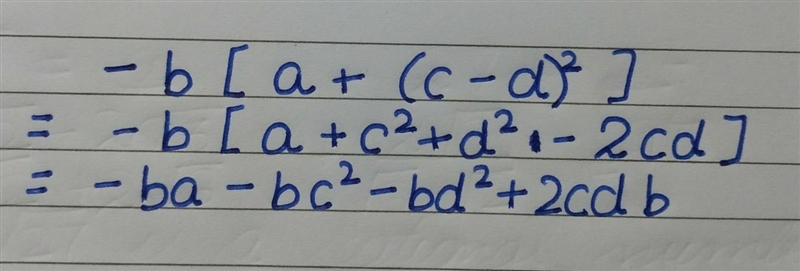 - b [ a + (c - d)² ]
= - b [ a + c² + d² - 2cd ]
= - ba - bc² - bd² + 2cdb